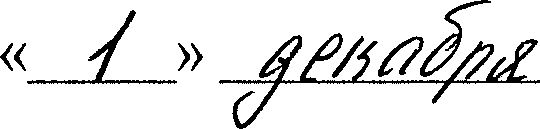 « 1 » декабря